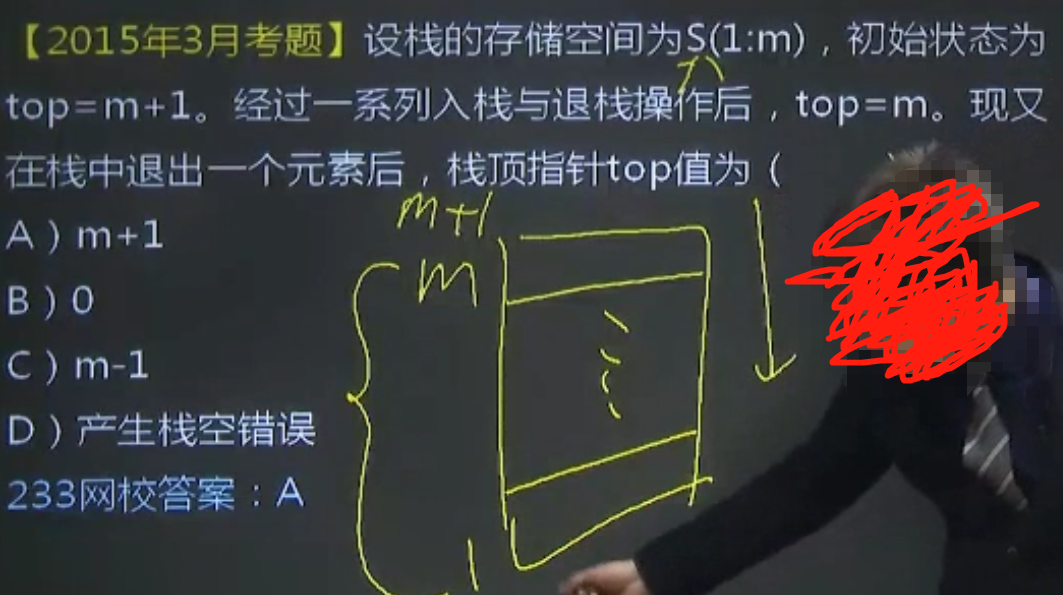 【2015年3月考题】设栈的存储空间为S(1:m)，初始状态为
top=m+1。经过一系列入栈与退栈操作后，top=m。现又
在栈中退出一个元素后，栈顶指针top值为（
A）m+1
B）0
C）m-1
D）产生栈空错误
233网校答案：A
m+1
m
1